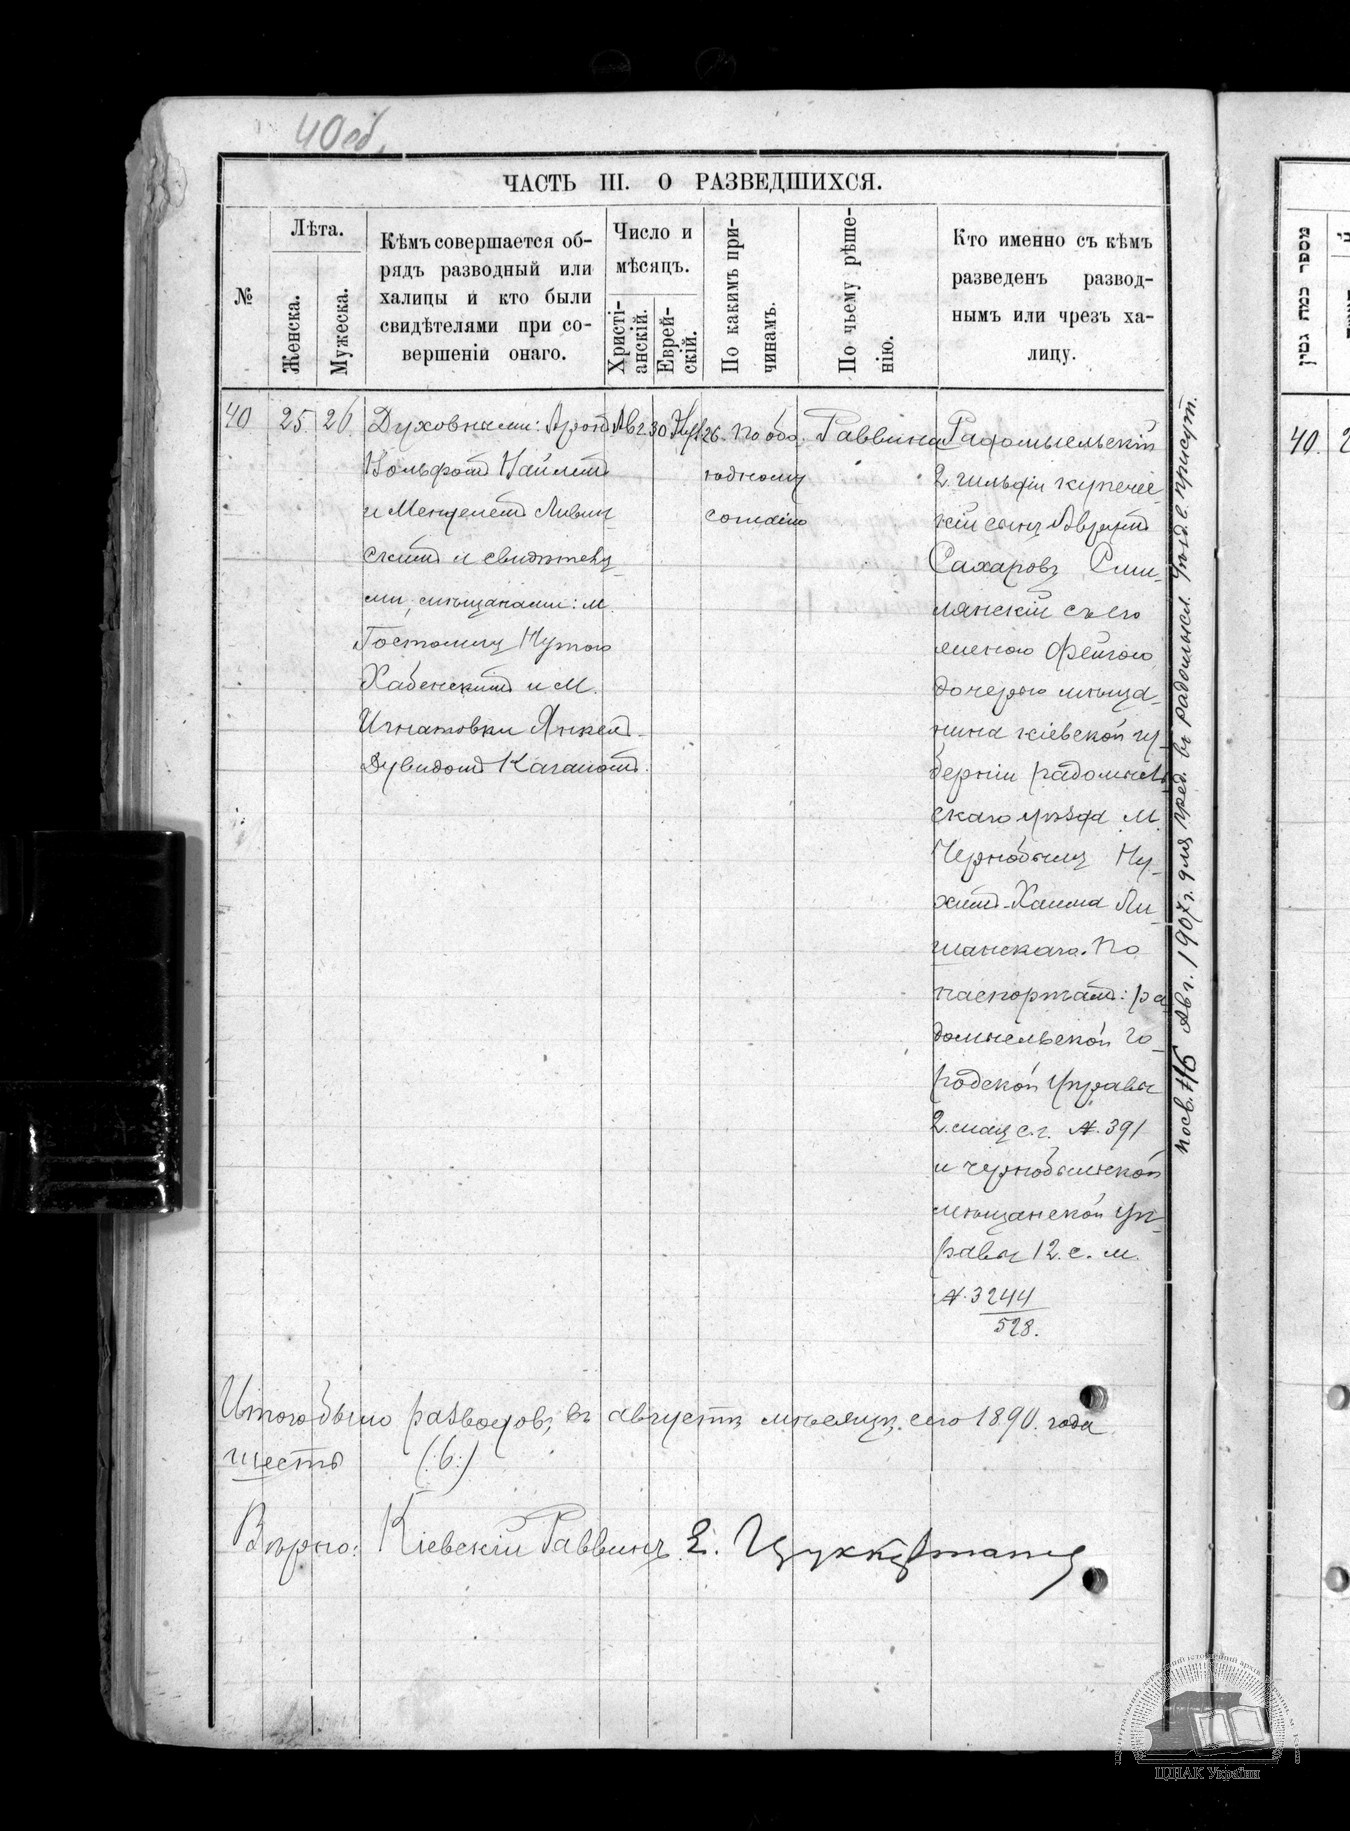 40 об.
ЧАСТЬ III. О РАЗВЕДШИХСЯ.
№
Лѣта.
Женска.
Мужеска.
Кѣмъ совершается об-
рядъ разводный или
халицы и кто были
свидѣтелями при со-
вершеніи онаго.
Число и
мѣсяцъ.
Христі-
анскій.
Еврей-
скій.
По какимъ при-
чинамъ.
По чьему рѣше-
нію.
Кто именно съ кѣмъ
разведенъ развод-
нымъ или чрезъ ха-
лицу.
40
25.
26.
Духовными:
Вольфомъ
и Менделемъ Ливин-
скимъ и свидѣтеля-
ми, мѣщанами: м.
Гостомля
Хабенскимъ и м.
Игнатовки Янкел-
Дувидомъ Каганомъ.
Авг. 30
26.
По обо-
юдному
согласію
Раввина
Радомысльскій
2 гильдіи купечес-
кій сынъ
Сахаровъ Сми-
лянскій съ его
женою Фейгою,
дочерью мѣща-
нина кіевской гу-
берніи радомысль-
скаго уѣзда м.
Чернобыля Ну-
химъ-Хаима Ли-
шанскаго. По
паспортамъ: ра-
домысльской го-
родской управы
2 мая с.г. №. 391
и чернобыльской
мѣщанской уп-
равы 12. с. м.
№. 3244
528.
Итого было разводовъ въ августѣ мѣсяцѣ сего 1890. года
шесть (:6:)
Вѣрно: Кіевскій Раввинъ Е. Цуккерманъ
Авг. 1907 г. для пред. въ радомысл. уѣзд. в. присут.
מספר כמת גטין
40.
2
ЦДІАК України